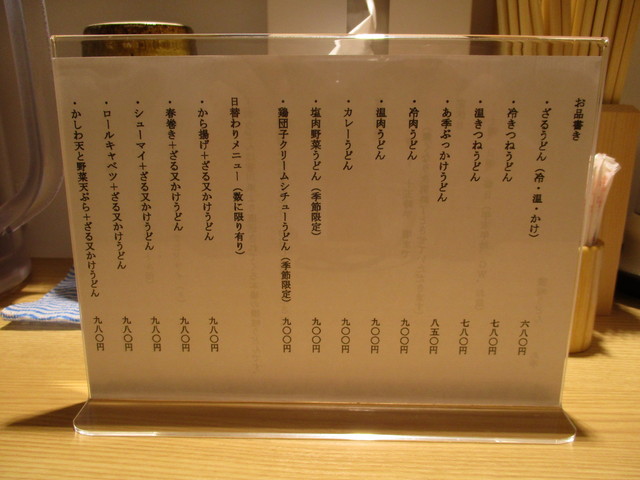 お品書き
・ざるうどん（冷・温・かけ） 六八〇円
・冷きつねうどん 七八〇円
・温きつねうどん 七八〇円
・あ季ぶっかけうどん 八五〇円
・冷肉うどん 九〇〇円
・温肉うどん 九〇〇円
・カレーうどん 九〇〇円
・塩肉野菜うどん（季節限定） 九〇〇円
・鶏団子クリームシチューうどん（季節限定） 九〇〇円
日替わりメニュー（数に限り有り）
・から揚げ＋ざる又かけうどん 九八〇円
・春巻き＋ざる又かけうどん 九八〇円
・シューマイ＋ざる又かけうどん 九八〇円
・ロールキャベツ＋ざる又かけうどん 九八〇円
・かしわ天と野菜天ぷら＋ざる又かけうどん 九八〇円